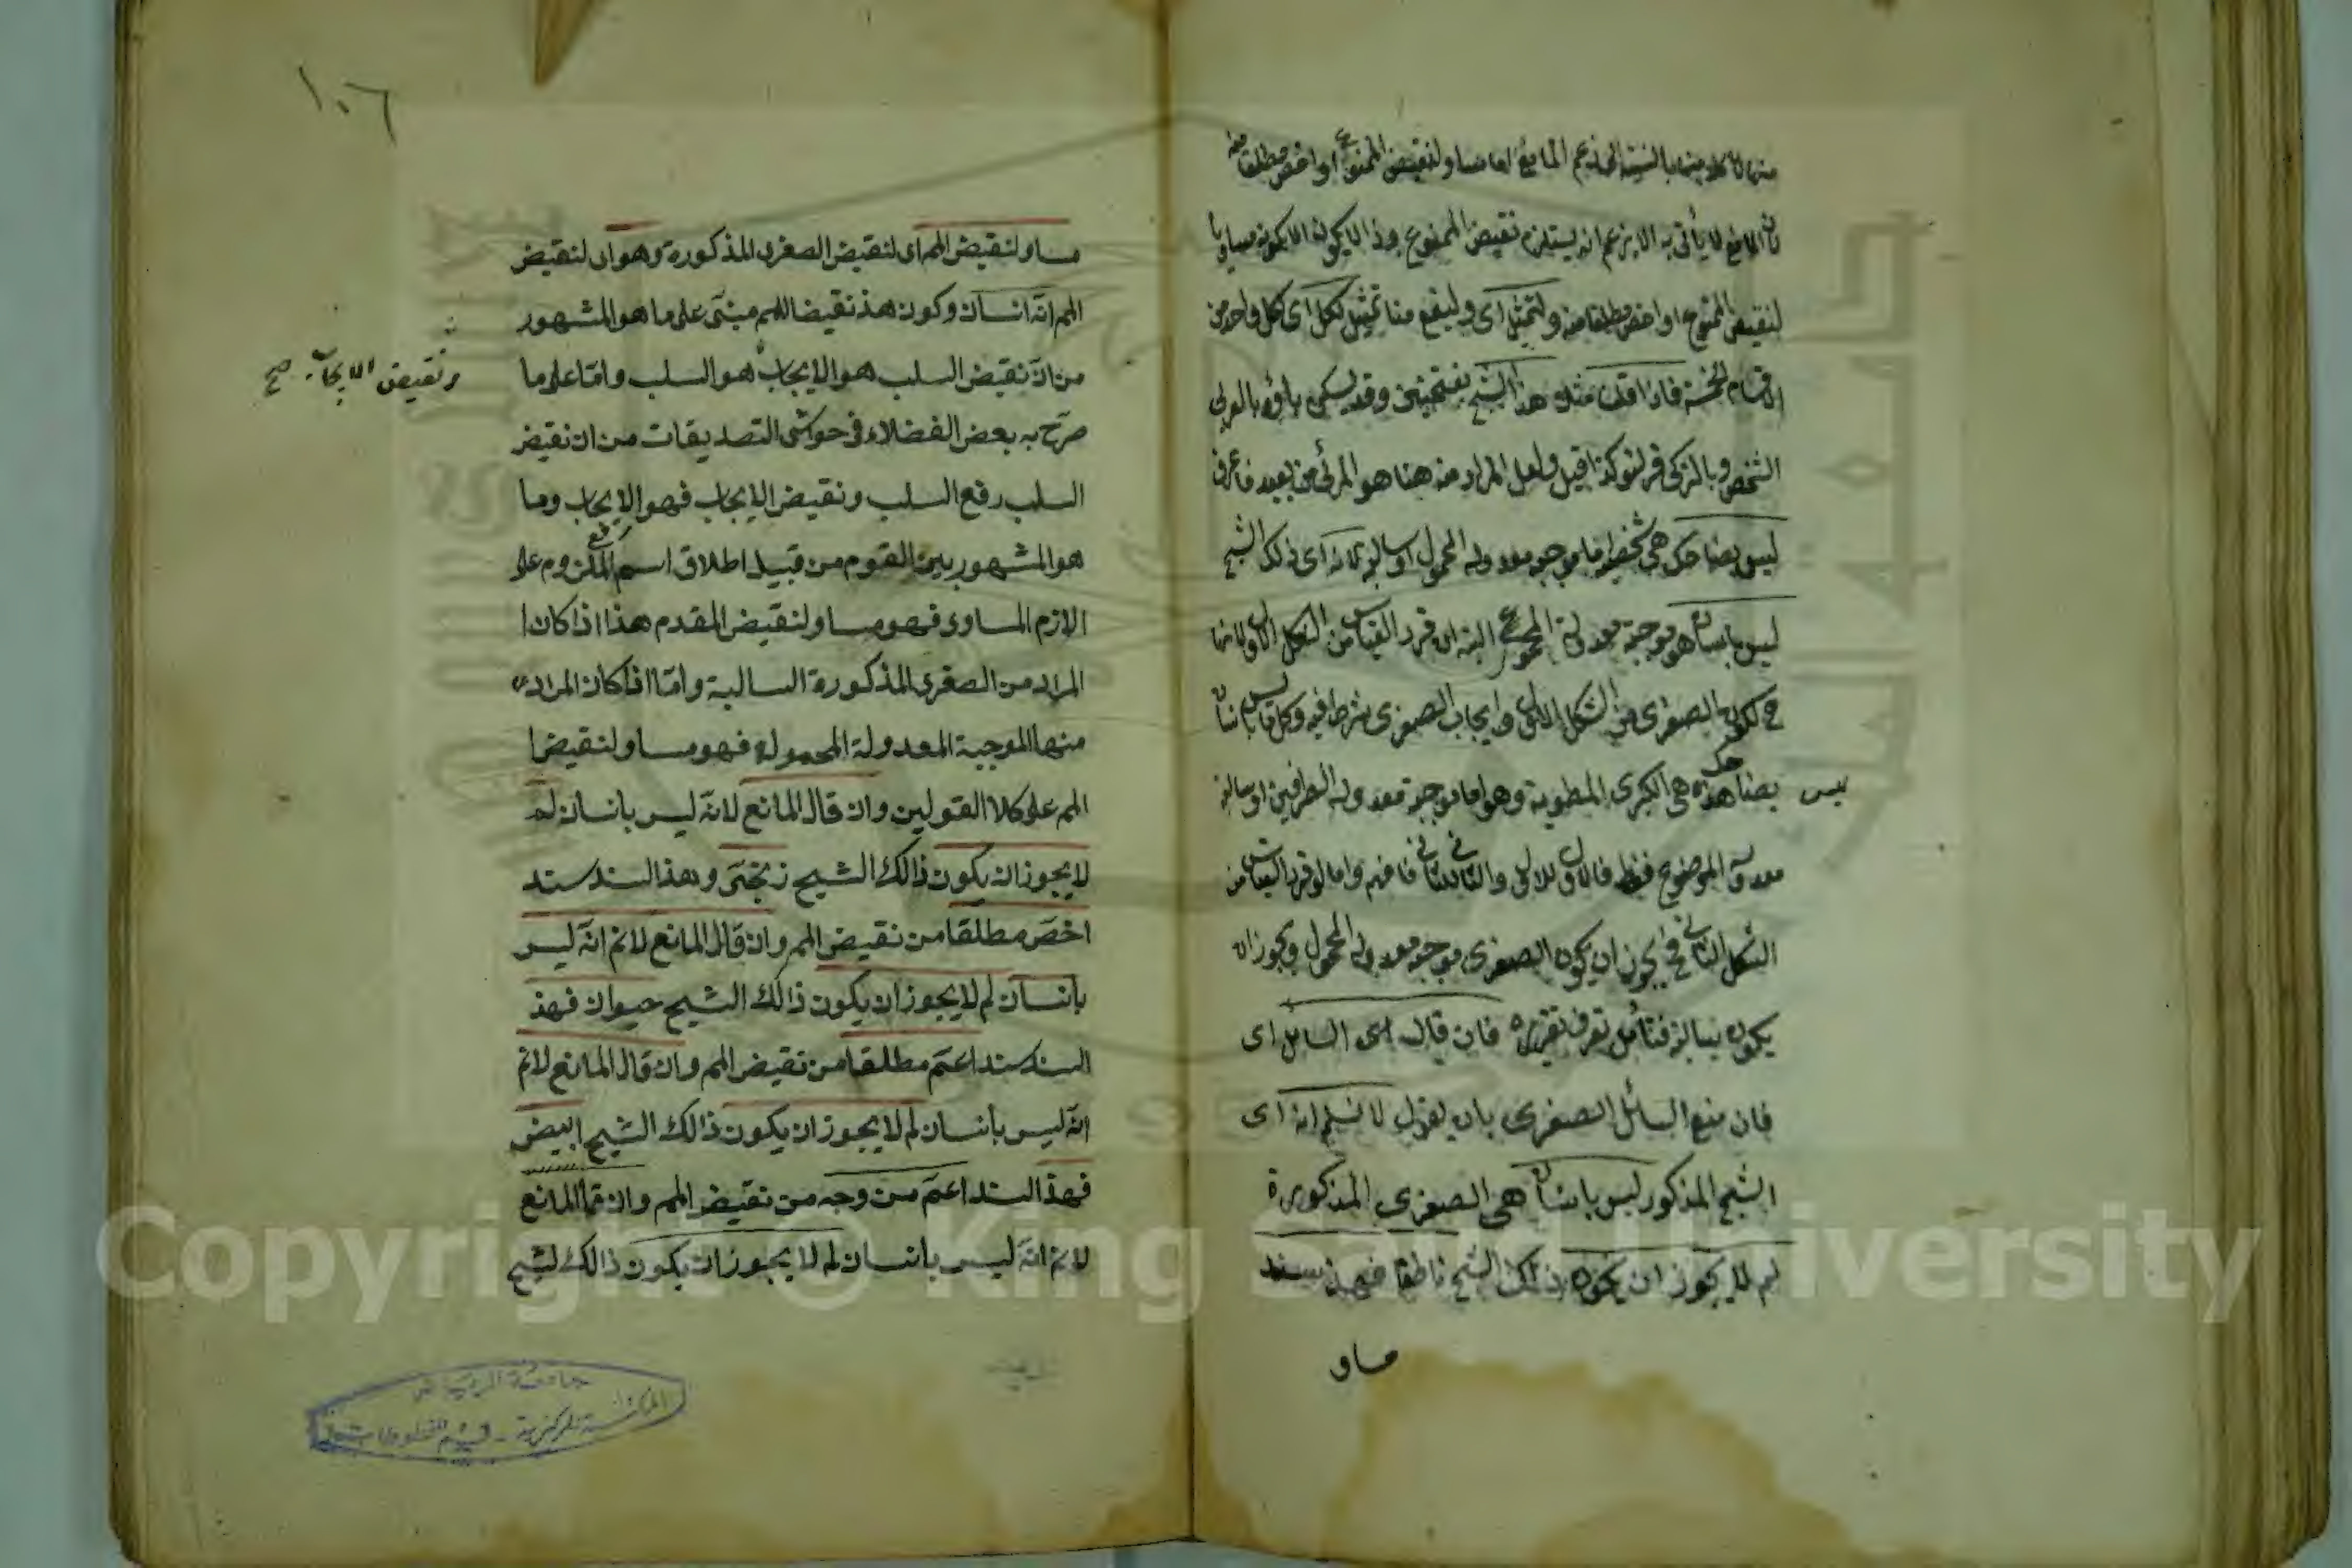 منها لان كلا منهما بالنسبة الى زعم المانع اما مساو لنقيض الممنوع او اخص مطلقا منه
لان المانع لا يأتى به الا بزعم انه يستلزم نقيض الممنوع وذا لا يكون الا بكونه مساويا
لنقيض الممنوع او اخص مطلقا منه ولنمثل اى وليقع منا تمثيل لكل اى كل واحد من
الاقسام الخمسة فاذا قلت مثلا هذا الشبح بفتحتين وقد يسكن باؤه بالعربى
الشخص وبالتركى قرلتو كذا قيل ولعل المراد منه هنا هو المرئى من بعيد فاعرف
ليس بضاحك هى شخصية اما موجبة معدولة المحمول او سالبة لانه اى ذلك الشبح
ليس بانسان هو موجبة معدولة المحمول البتة ان قرر القياس من الشكل الاول لانها
ح صغرى من الشكل الاول وايجاب الصغرى شرط فيه وكل ما ليس بانسان
ليس بضاحك هذه هى الكبرى المطوية وهو اما موجبة معدولة الطرفين او سالبة
معدولة الموضوع فقط فالاول للاول والثانى للثانى فافهم واما لو قرر القياس من
الشكل الثانى فح يجوز ان يكون الصغرى موجبة معدولة المحمول ويجوز ان
يكون سالبة فتأمل تعرف تقريره فان قال اى السائل اى
فان منع السائل الصغرى بان يقول لا نسلم انه اى
الشبح المذكور ليس بانسان هى الصغرى المذكورة
لم لا يجوز ان يكون ذلك الشبح ناطقا فهذا سند
مساو
١٠٦
مساو لنقيض المم اى لنقيض الصغرى المذكورة وهو اى لنقيض
المم انه انسان وكون هذ نقيضا للمم مبنىّ على ما هو المشهور
من انّ نقيض السلب هو الايجاب هو السلب وامّا على ما
ونقيض الايجاب صح
صرّح به بعض الفضلاء فى حواشى التصديقات من ان نقيض
السلب رفع السلب ونقيض الايجاب فهو الايجاب وما
هو المشهور بين القوم من قبيل اطلاق اسم الملزوم على
الازم المساوى فهو مساو لنقيض المقدم هذا اذا كان ا
المراد من الصغرى المذكورة السالبة وامّا اذا كان المراد
منها الموجبة المعدولة المحمولة فهو مساو لنقيض ا
المم على كلا القولين وان قال المانع لانه ليس بانسان لم
لا يجوز ان يكون ذالك الشبح زنجىّ وهذ السند سند
اخصّ مطلقا من نقيض المم وان قال المانع لانم انّه ليس
بانسان لم لا يجوز ان يكون ذالك الشبح حيوان فهذ
السند سند اعمّ مطلقا من نقيض المم وان قال المانع لانم
انّه ليس بانسان لم لا يجوز ان يكون ذالك الشبح ابيض
فهذ السند اعمّ من وجه من نقيض المم وان قال المانع
لانم انّه ليس بانسان لم لا يجوز ان يكون ذالك لشبح
جامعة الرياض
المكتبة المركزية - قسم المخطوطات
Copyright © King Saud University